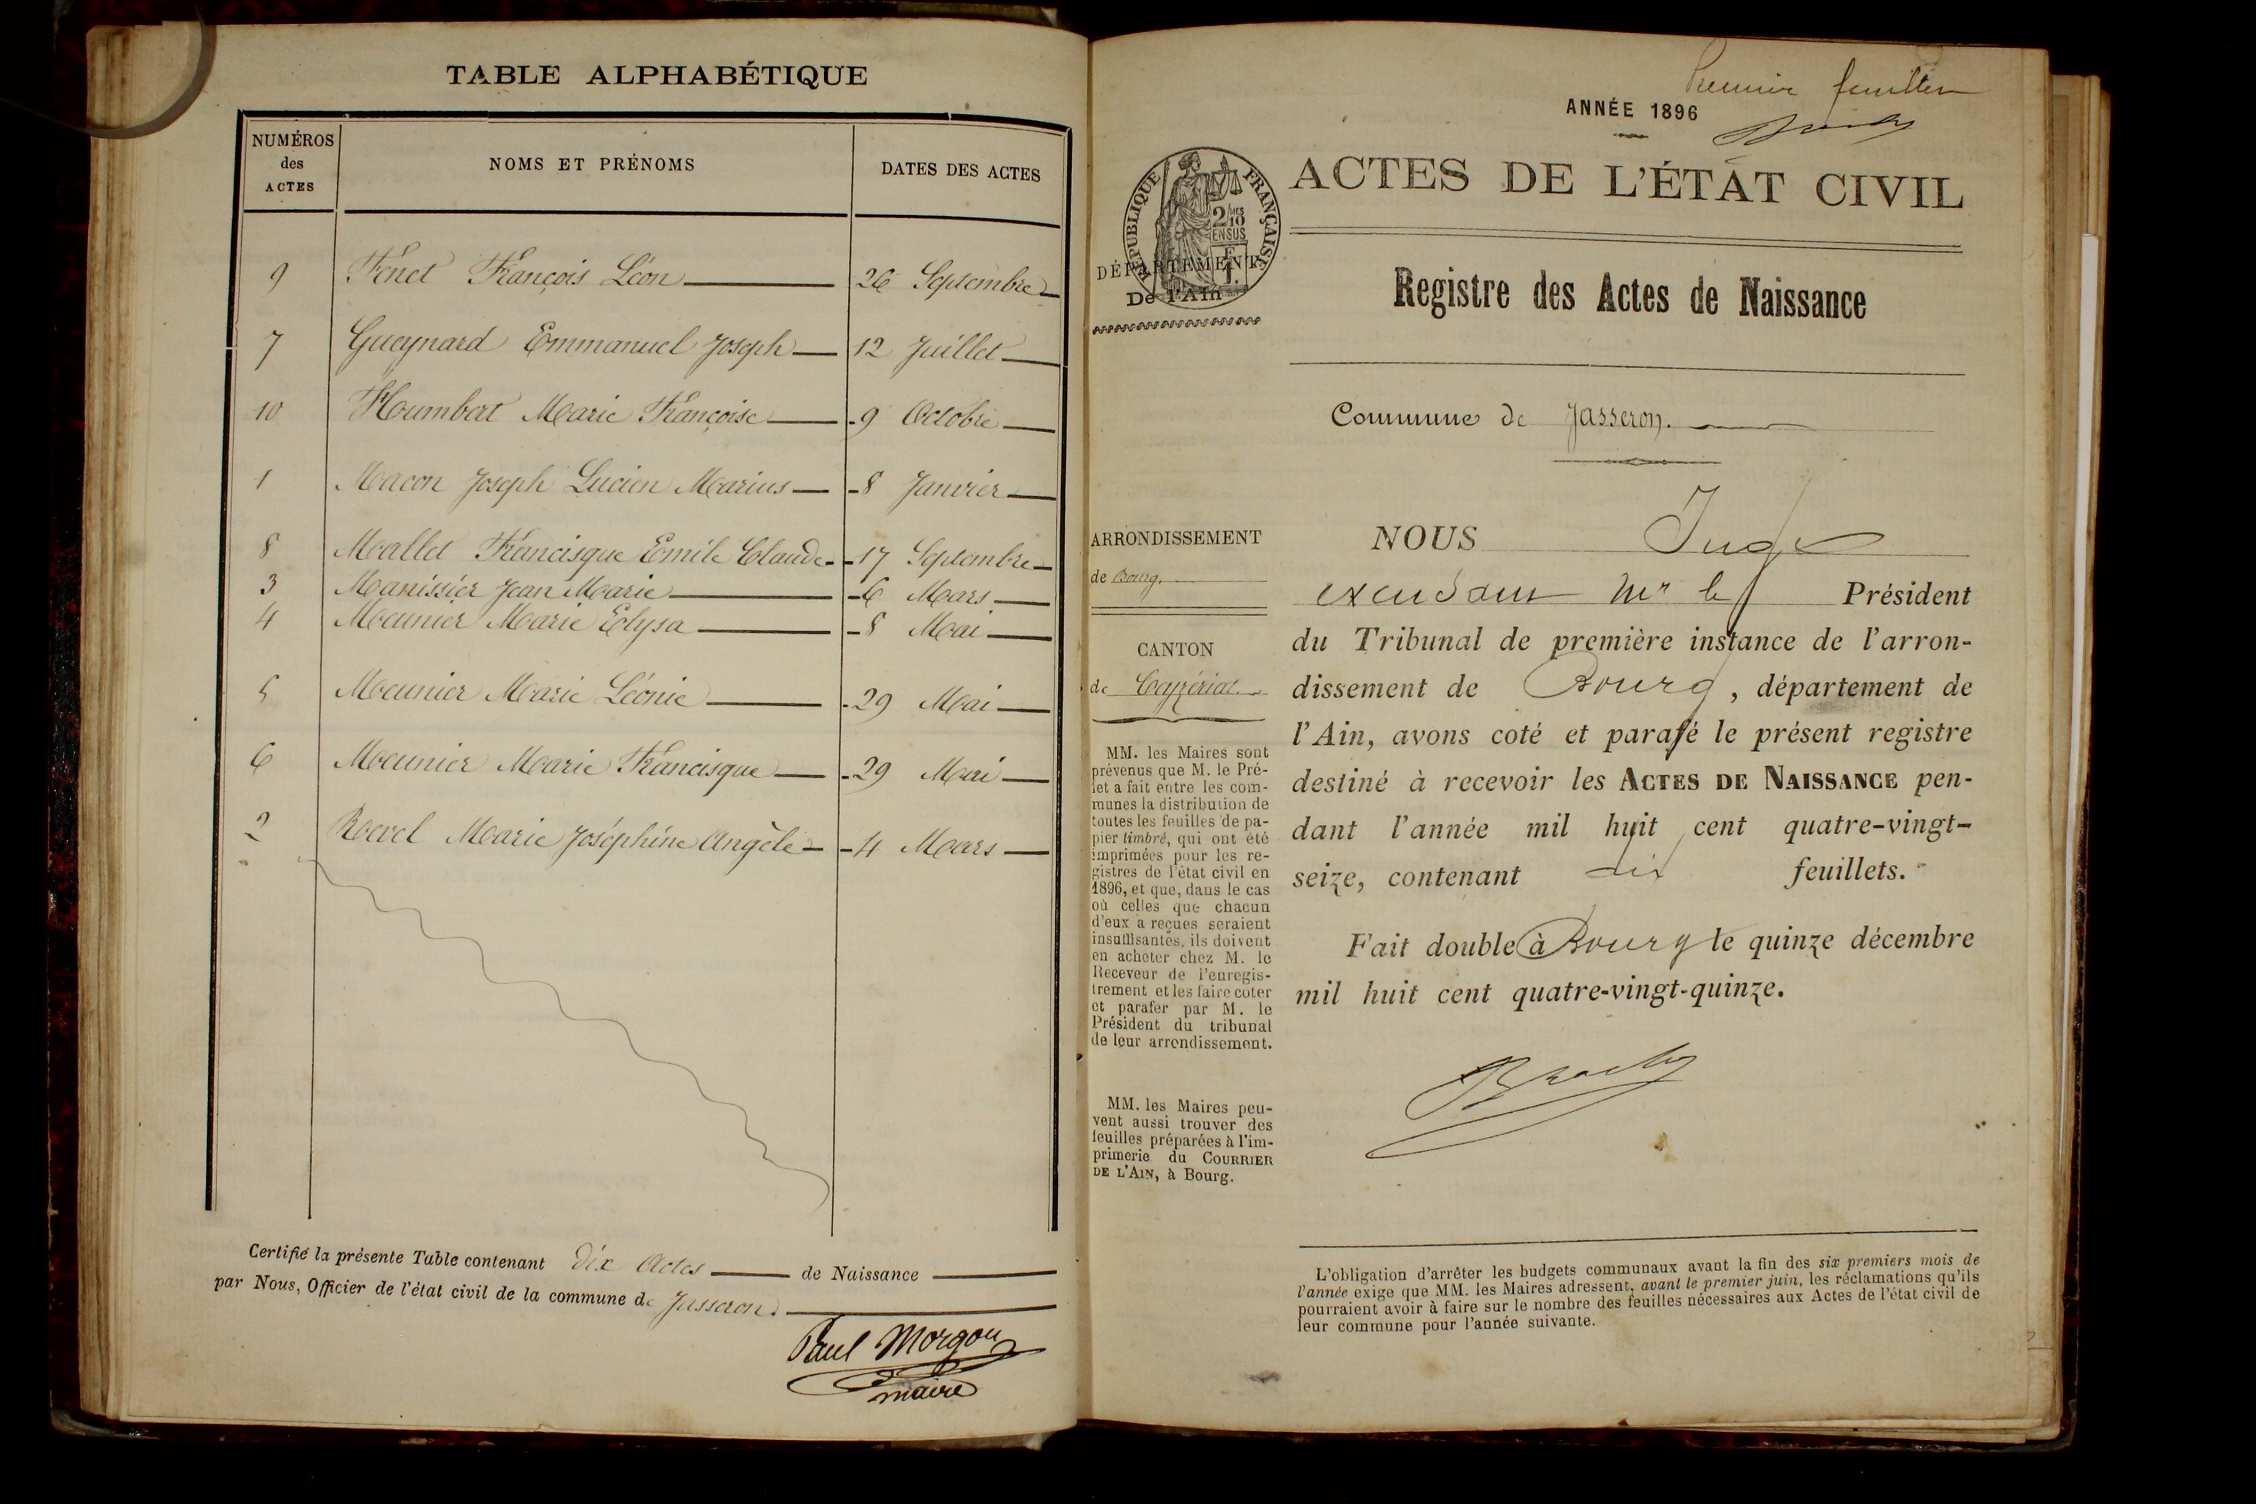 TABLE ALPHABÉTIQUE
NUMÉROS des ACTES NOMS ET PRÉNOMS DATES DES ACTES
9 Fénet François Léon 26 Septembre
7 Gueynard Emmanuel Joseph 12 Juillet
10 Humbert Marie Françoise 9 Octobre
1 Macon Joseph Lucien Marius 8 Janvier
8 Mallet Francisque Emile Claude 17 Septembre
3 Manissier Jean Marie 6 Mars
4 Meunier Marie Elysa 8 Mai
5 Meunier Marie Léonie 29 Mai
6 Meunier Marie Francisque 29 Mai
2 Revel Marie Joséphine Angèle 4 Mars
Certifié la présente Table contenant Dix Actes de Naissance
par Nous, Officier de l'état civil de la commune de Jasseron.
Paul Morgon
maire
Premier feuillet
ANNÉE 1896
RÉPUBLIQUE FRANÇAISE
2/10 EN SUS
ACTES DE L'ÉTAT CIVIL
DÉPARTEMENT
De l'Ain
Registre des Actes de Naissance
Commune de Jasseron.
ARRONDISSEMENT
de Bourg.
CANTON
de Ceyzériat
MM. les Maires sont
prévenus que M. le Pré-
fet a fait entre les com-
munes la distribution de
toutes les feuilles de pa-
pier timbré, qui ont été
imprimées pour les re-
gistres de l'état civil en
1896, et que, dans le cas
où celles que chacun
d'eux a reçues seraient
insuffisantes, ils doivent
en acheter chez M. le
Receveur de l'enregis-
trement et les faire coter
et parafer par M. le
Président du tribunal
de leur arrondissement.
MM. les Maires peu-
vent aussi trouver des
feuilles préparées à l'im-
primerie du COURRIER
DE L'AIN, à Bourg.
NOUS Juge
Mr le Président
du Tribunal de première instance de l'arron-
dissement de Bourg, département de
l'Ain, avons coté et parafé le présent registre
destiné à recevoir les ACTES DE NAISSANCE pen-
dant l'année mil huit cent quatre-vingt-
seize, contenant dix feuillets.
Fait double à Bourg le quinze décembre
mil huit cent quatre-vingt-quinze.
L'obligation d'arrêter les budgets communaux avant la fin des six premiers mois de
l'année exige que MM. les Maires adressent, avant le premier juin, les réclamations qu'ils
pourraient avoir à faire sur le nombre des feuilles nécessaires aux Actes de l'état civil de
leur commune pour l'année suivante.